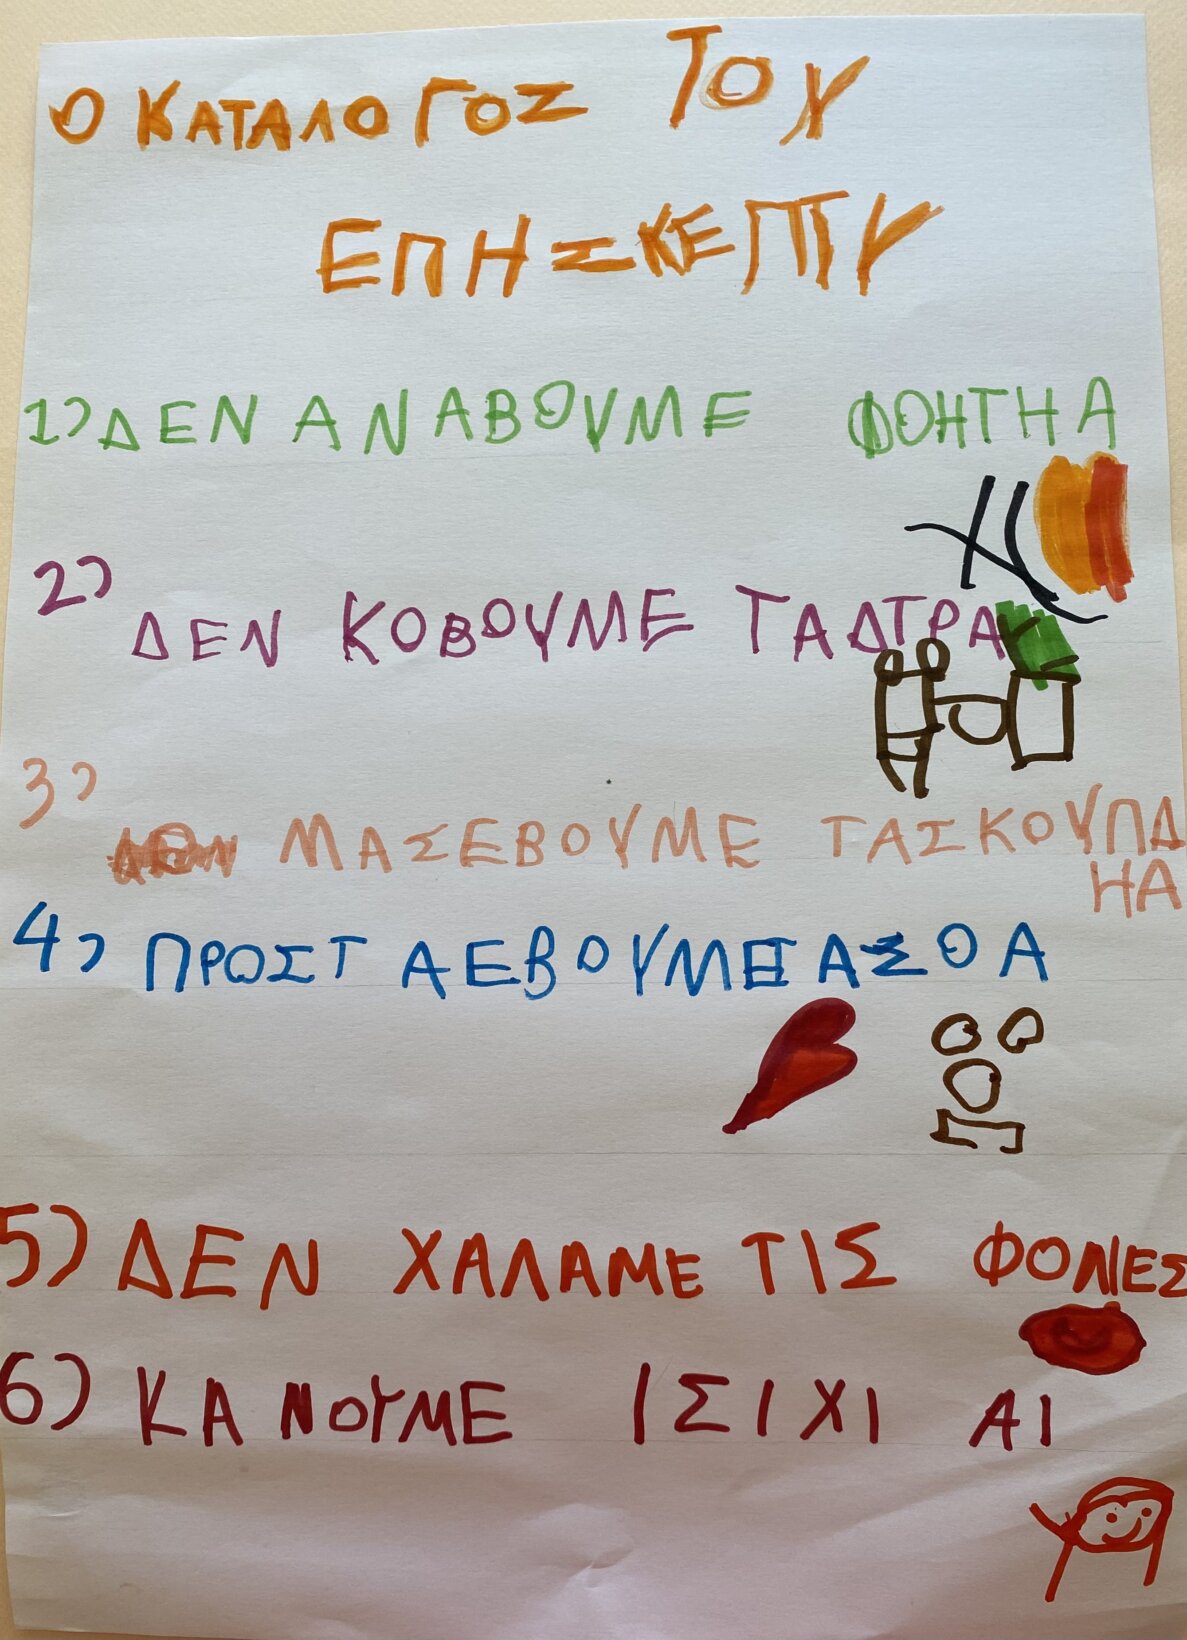 Ο ΚΑΤΑΛΟΓΟΣ ΤΟΥ
ΕΠΗΣΚΕΠΤΥ
1) ΔΕΝ ΑΝΑΒΟΥΜΕ ΦΟΗΤΗΑ
2) ΔΕΝ ΚΟΒΟΥΜΕ ΤΑΔΤΡΑ
3) ΜΑΣΕΒΟΥΜΕ ΤΑΣΚΟΥΠΔ
ΗΑ
4) ΠΡΟΣΤ ΑΕΒΟΥΜΕ ΑΣΟΑ
5) ΔΕΝ ΧΑΛΑΜΕ ΤΙΣ ΦΟΛΙΕΣ
6) ΚΑΝΟΥΜΕ ΙΣΙΧΙ ΑΙ